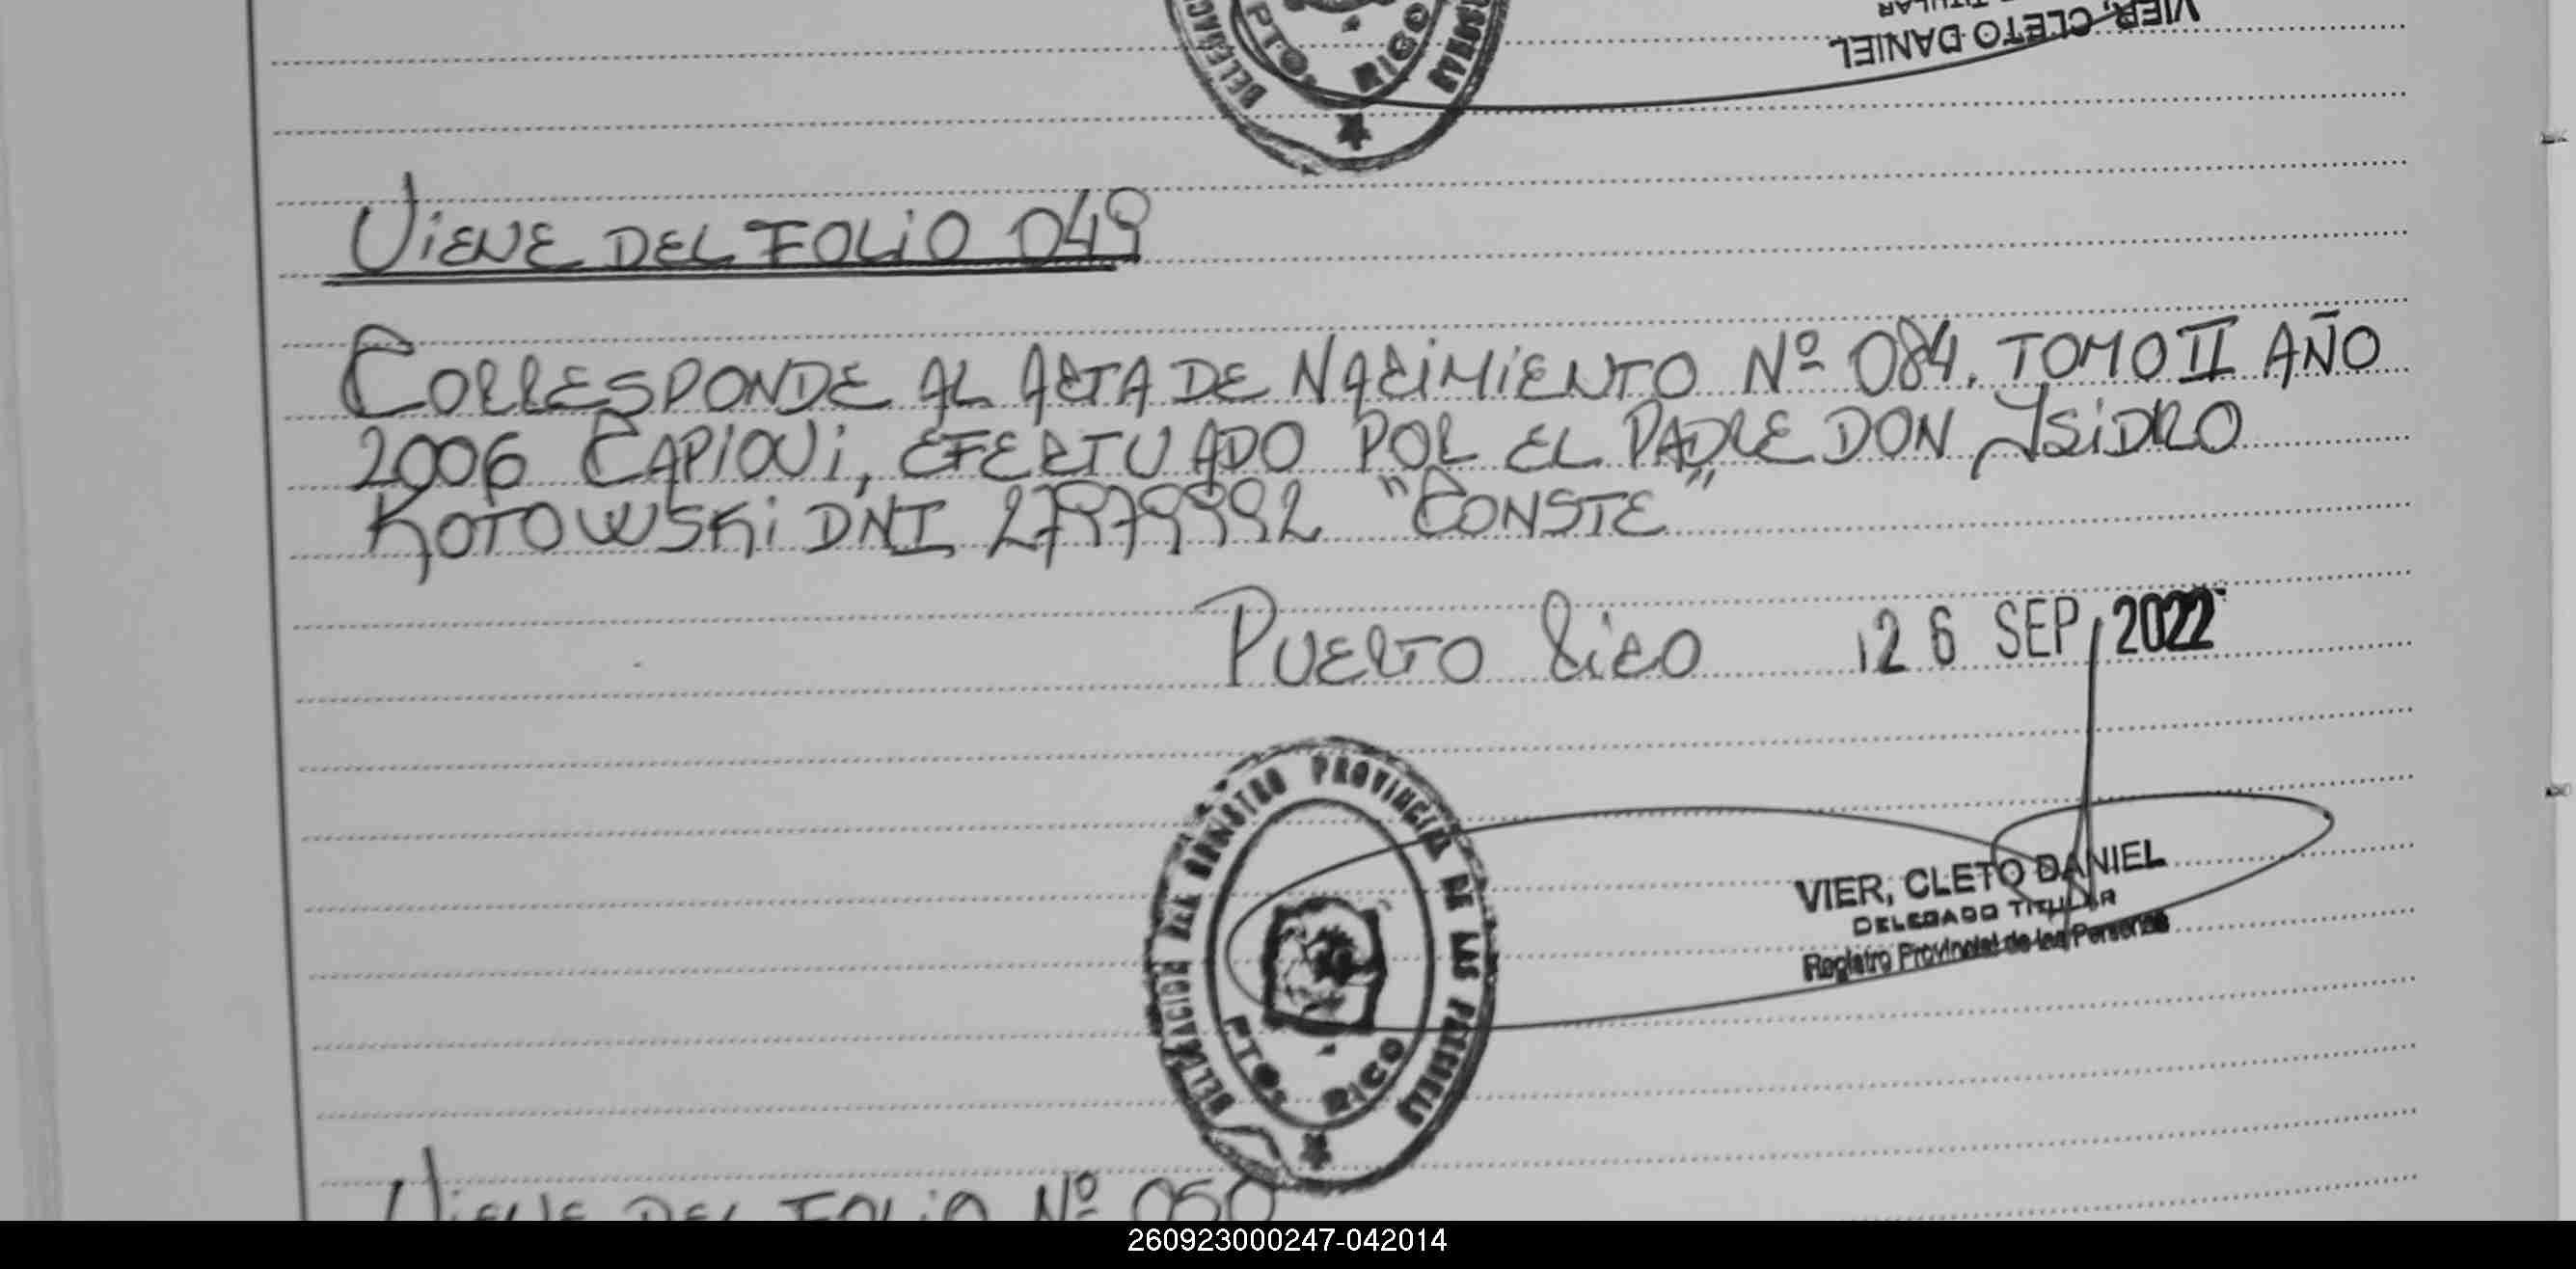 VIER, CLETO DANIEL
PTO. RICO
VIENE DEL FOLIO 049
CORRESPONDE AL ACTA DE NACIMIENTO Nº 084. TOMO II AÑO
2006 CAPIOVI, EFECTUADO POR EL PADRE DON ISIDRO
KOTOWSKI DNI 27979992 "CONSTE"
PUERTO RICO 26 SEP 2022
DELEGACION DEL REGISTRO PROVINCIAL DE LAS PERSONAS
PTO. RICO
VIER, CLETO DANIEL
DELEGADO TITULAR
Registro Provincial de las Personas
VIENE DEL FOLIO Nº 050
260923000247-042014